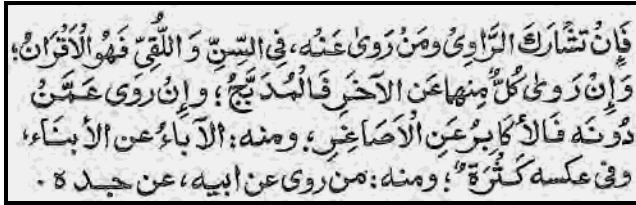 فَإِنْ تَشَارَكَ الرَّاوِیْ وَمَنْ رَوىٰ عَنْهُ، فِی السِّنِّ وَ اللُّقِیِّ فَهُوَ الْاَقْرَانُ؛
وَإِنْ رَوىٰ كُلٌّ مِنْهما عَنِ الآخَرِ فَالْمُدَبَّجُ؛ وإِنْ رَوَى عَمَّنْ
دُونَهُ فَالأكَابِرُ عَنِ الْاَصَاغِرِ، ومنه: الآبَاءُ عن الأبنَاءِ،
وفی عكسه كَثْرَةٌ؛ ومنه: من روى عن ابيه، عن جده.